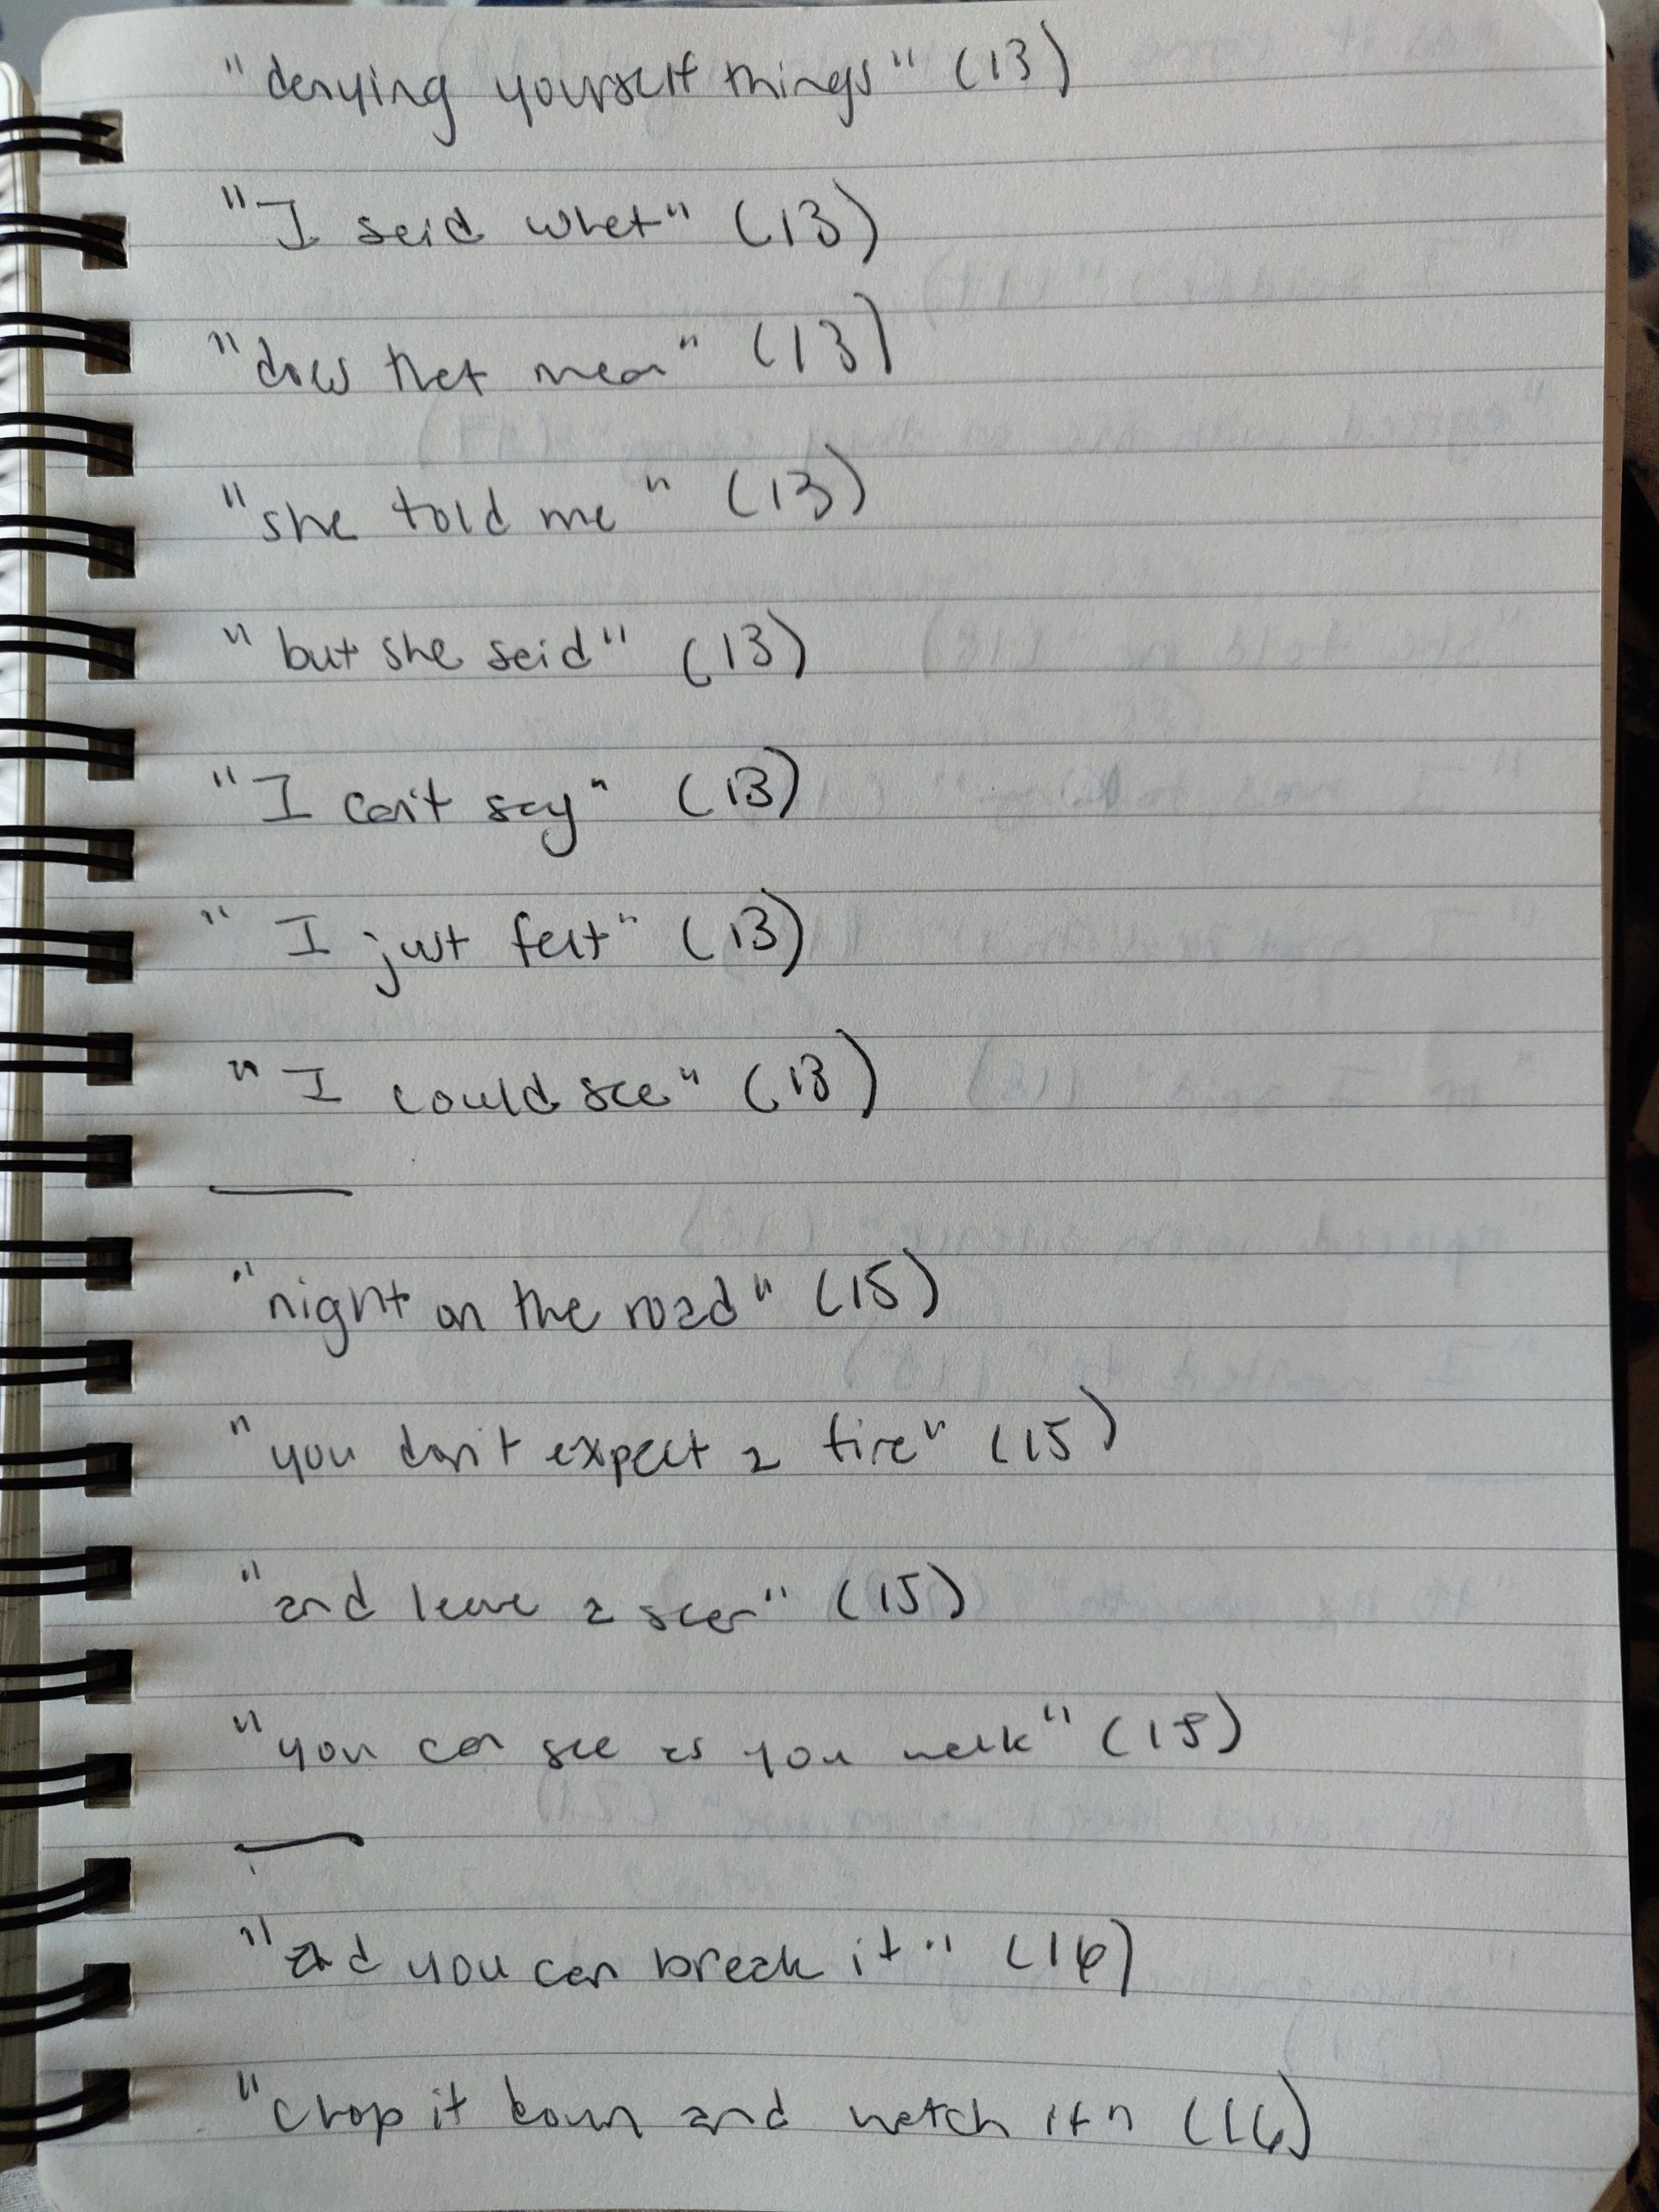 "denying yourself things" (13)
"I said what" (13)
"does that mean" (13)
"she told me" (13)
"but she said" (13)
"I can't say" (13)
"I just felt" (13)
"I could see" (13)
"night on the road" (15)
"you don't expect a fire" (15)
"and leave a scar" (15)
"you can see as you walk" (15)
"and you can break it" (16)
"chop it down and watch it" (16)